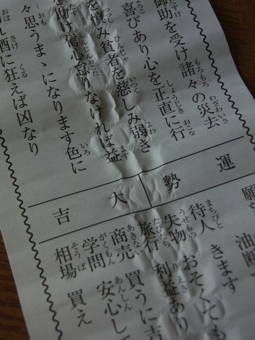 御助を受け諸々の災去
喜びあり心を正直に行
を慎み貧者を慈しみ弱き
助け信心怠りなければ益
々思うまゝになります色に
れ酒に狂えば凶なり
運勢 大吉
願
油断
きます
待人 おそくとも
失物
旅行 利益あり
商売 買うに吉
学問 安心して
相場 買え